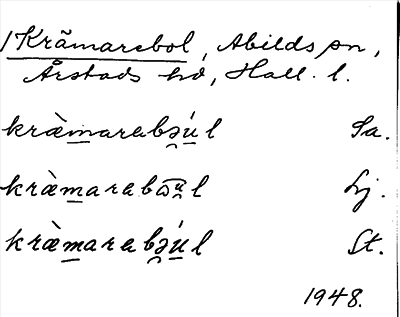 /Krämarebol, Abilds sn,
Årstads hd, Hall. l.
kræ̀m̲arabə̯ú̲l Sa.
kræ̀m̲arabω͡u̲l Lj.
kræ̀m̲arabə̯ú̲l St.
1948.